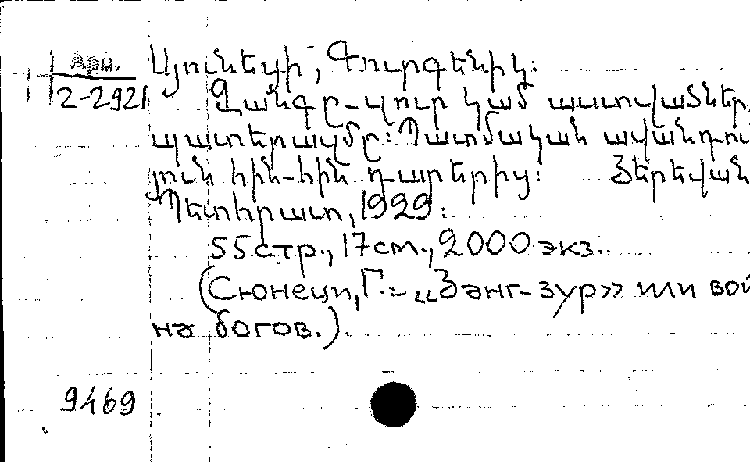 Арм.
2-2921
Սյունեցի, Գուրգենիկ:
Զանգը-զուր կամ աստվածներ
պատերազմը: Պատմական ավանդու
յուն հին-հին դարերից: Յերեվան
Պետհրատ, 1929:
55 стр., 17 см., 2000 экз.
(Сюнеци, Г.- „Занг-зур» или вой
на богов.)
9469